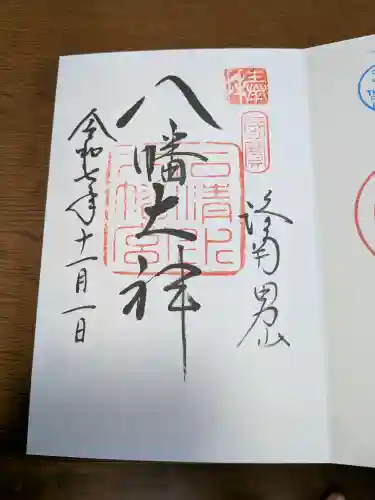 洛南男山
八幡大神
石清水八幡宮
令和七年十一月一日